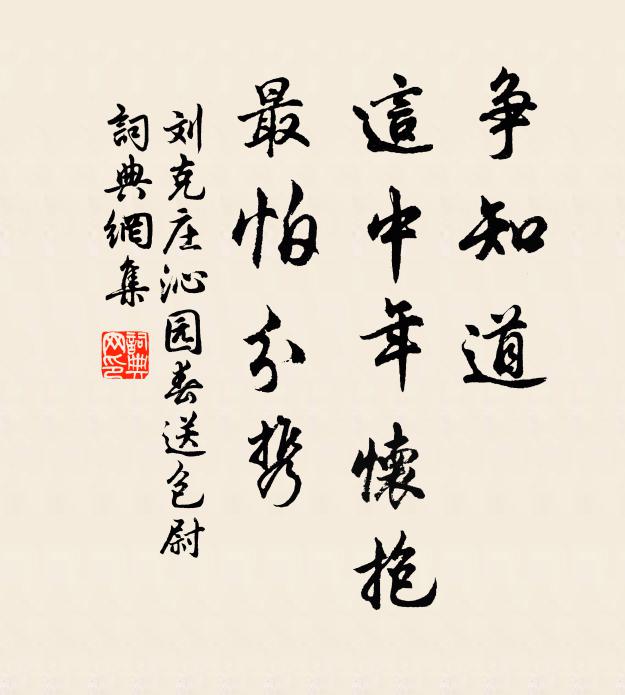 争知道
這中年懷抱
最怕分携
刘克庄沁园春送包尉
詞典網集
詞典网印